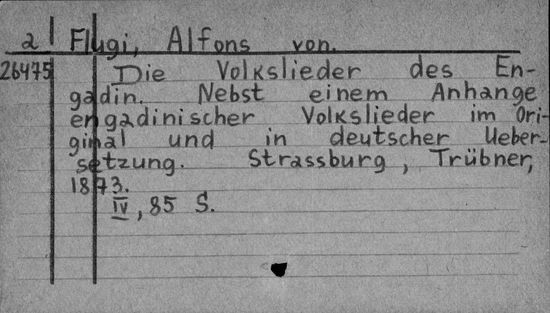 2 Flugi, Alfons von.
26475 Die Volkslieder des En-
gadin. Nebst einem Anhange
engadinischer Volkslieder im Ori-
ginal und in deutscher Ueber-
setzung. Strassburg, Trübner,
1873.
IV, 85 S.